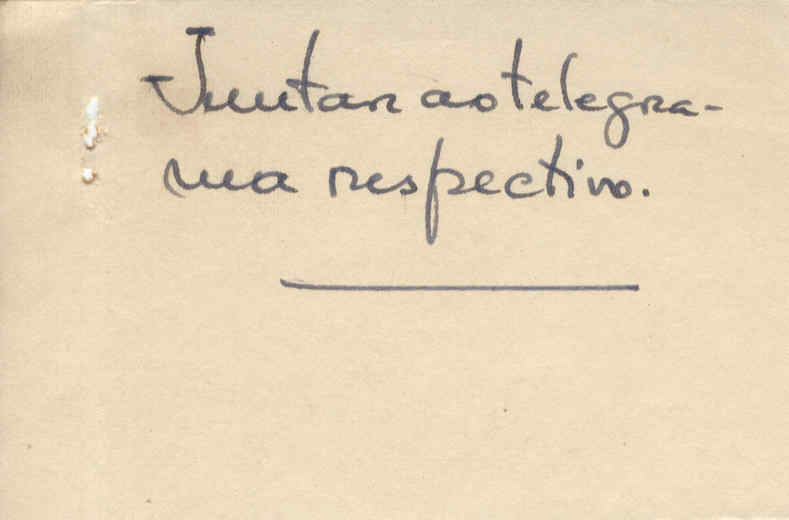 Juntar ao telegra-
ma respectivo.